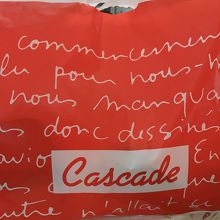 commencement
lu pour nous-m
nous manqua
s donc dessiné
avio
En
Cascade
utre n'allait su